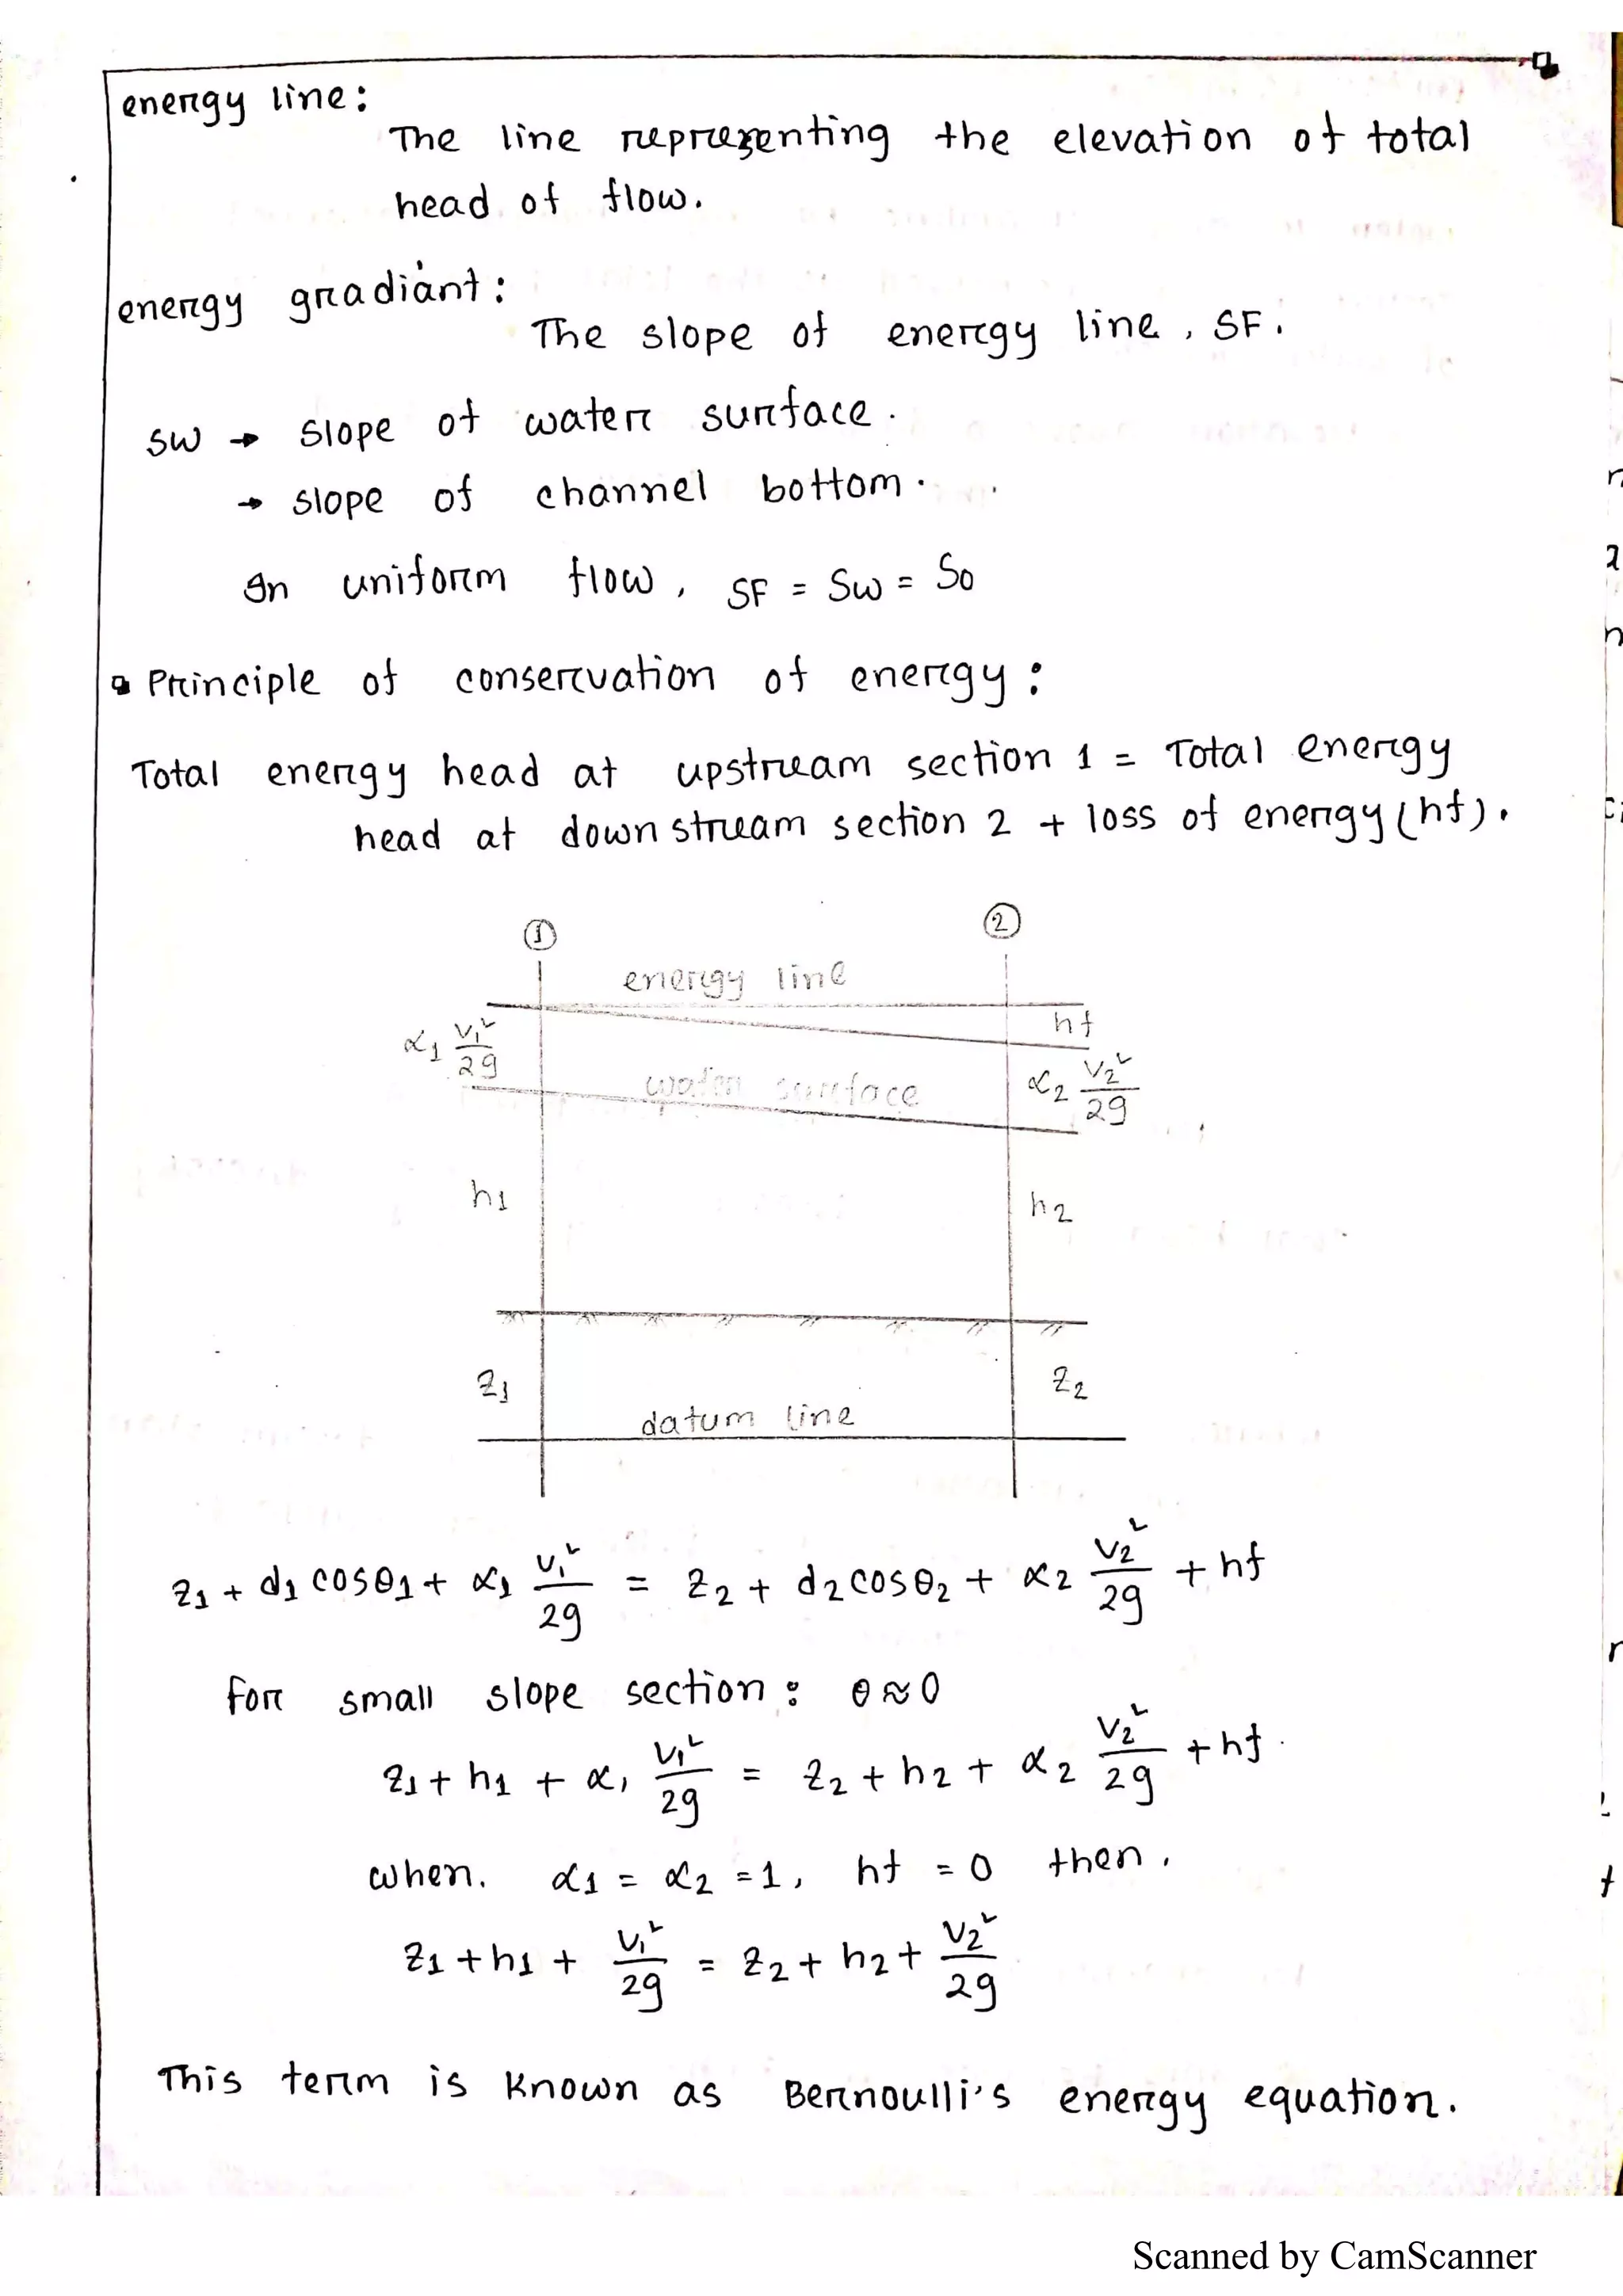 energy line:
The line representing the elevation of total
head of flow.
energy gradiant:
The slope of energy line, SF.
SW → slope of water surface.
→ slope of channel bottom.
In uniform flow, SF = Sw = So
Principle of conservation of energy:
Total energy head at upstream section 1 = Total energy
head at down stream section 2 + loss of energy (hf).
① ②
energy line
hf
α₁ V₁²/2g
water surface
α₂ V₂²/2g
h₁
h₂
z₁
z₂
datum line
z₁ + d₁ cosθ₁ + α₁ V₁²/2g = z₂ + d₂ cosθ₂ + α₂ V₂²/2g + hf
For small slope section: θ ≈ 0
z₁ + h₁ + α₁ V₁²/2g = z₂ + h₂ + α₂ V₂²/2g + hf.
when, α₁ = α₂ = 1, hf = 0 then,
z₁ + h₁ + V₁²/2g = z₂ + h₂ + V₂²/2g
This term is known as Bernoulli's energy equation.
Scanned by CamScanner